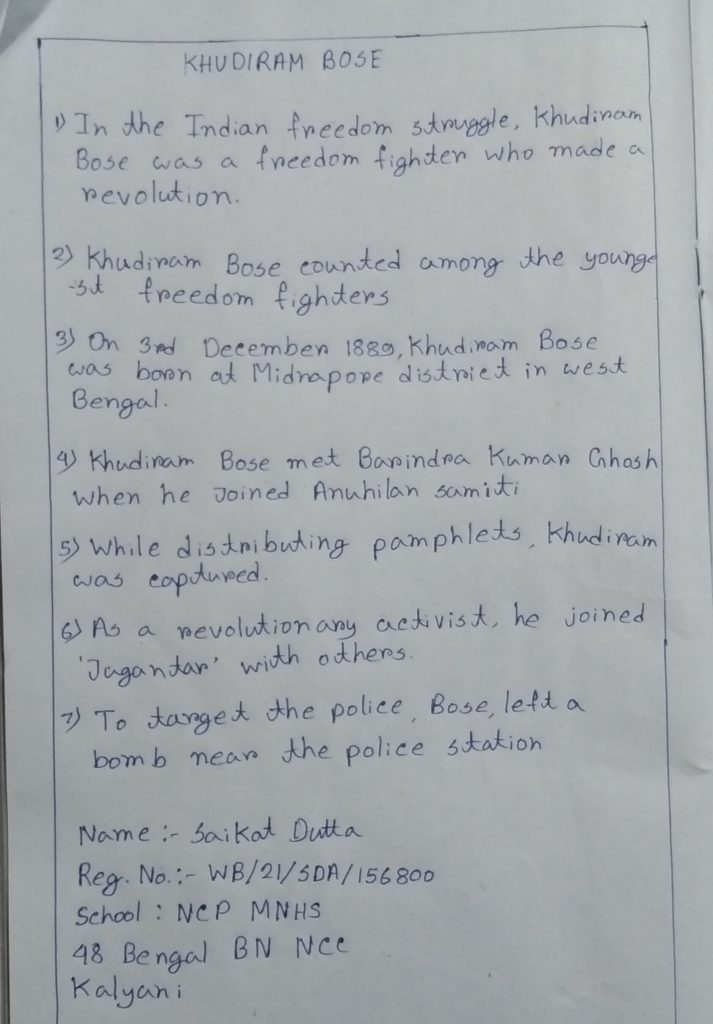 KHUDIRAM BOSE
1) In the Indian freedom struggle, Khudiram
Bose was a freedom fighter who made a
revolution.
2) Khudiram Bose counted among the younge
-st freedom fighters
3) On 3rd December 1889, Khudiram Bose
was born at Midnapore district in west
Bengal.
4) Khudiram Bose met Barindra Kumar Ghosh
when he Joined Anuhilan samiti
5) While distributing pamphlets, Khudiram
was captured.
6) As a revolutionary activist, he joined
'Jugantar' with others.
7) To target the police, Bose, left a
bomb near the police station
Name :- Saikat Dutta
Reg. No.:- WB/21/SDA/156800
School : NCP MNHS
48 Bengal BN NCC
Kalyani